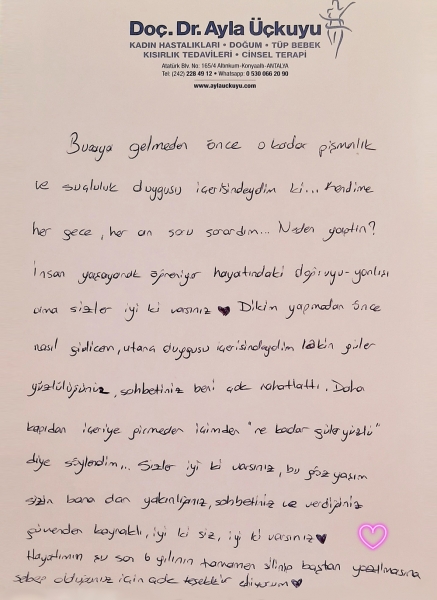 Doç. Dr. Ayla Üçkuyu
KADIN HASTALIKLARI • DOĞUM • TÜP BEBEK
KISIRLIK TEDAVİLERİ • CİNSEL TERAPİ
Atatürk Blv. No: 165/4 Altınkum-Konyaaltı-ANTALYA
Tel: (242) 228 49 12 • Whatsapp: 0 530 066 20 90
www.aylauckuyu.com
Buraya gelmeden önce o kadar pişmanlık
ve suçluluk duygusu içerisindeydim ki... Kendime
her gece, her an soru sorardım... Neden yaptın?
İnsan yaşayarak öğreniyor hayatındaki doğruyu-yanlışı
ama sizler iyi ki varsınız ♥ Dikim yapmadan önce
nasıl gidicem, utanç duygusu içerisindeydim lakin güler
yüzlülüğünüz, sohbetiniz beni çok rahatlattı. Daha
kapıdan içeriye girmeden içimden "ne kadar güleryüzlü"
diye söylendim... Sizler iyi ki varsınız, bu göz yaşım
sizin bana olan yakınlığınız, sohbetiniz ve verdiğiniz
güvenden kaynaklı, iyi ki siz, iyi ki varsınız ♥
Hayatımın şu son 6 yılının tamamen silinip baştan yazılmasına
sebep olduğunuz için çok teşekkür ediyorum ♥